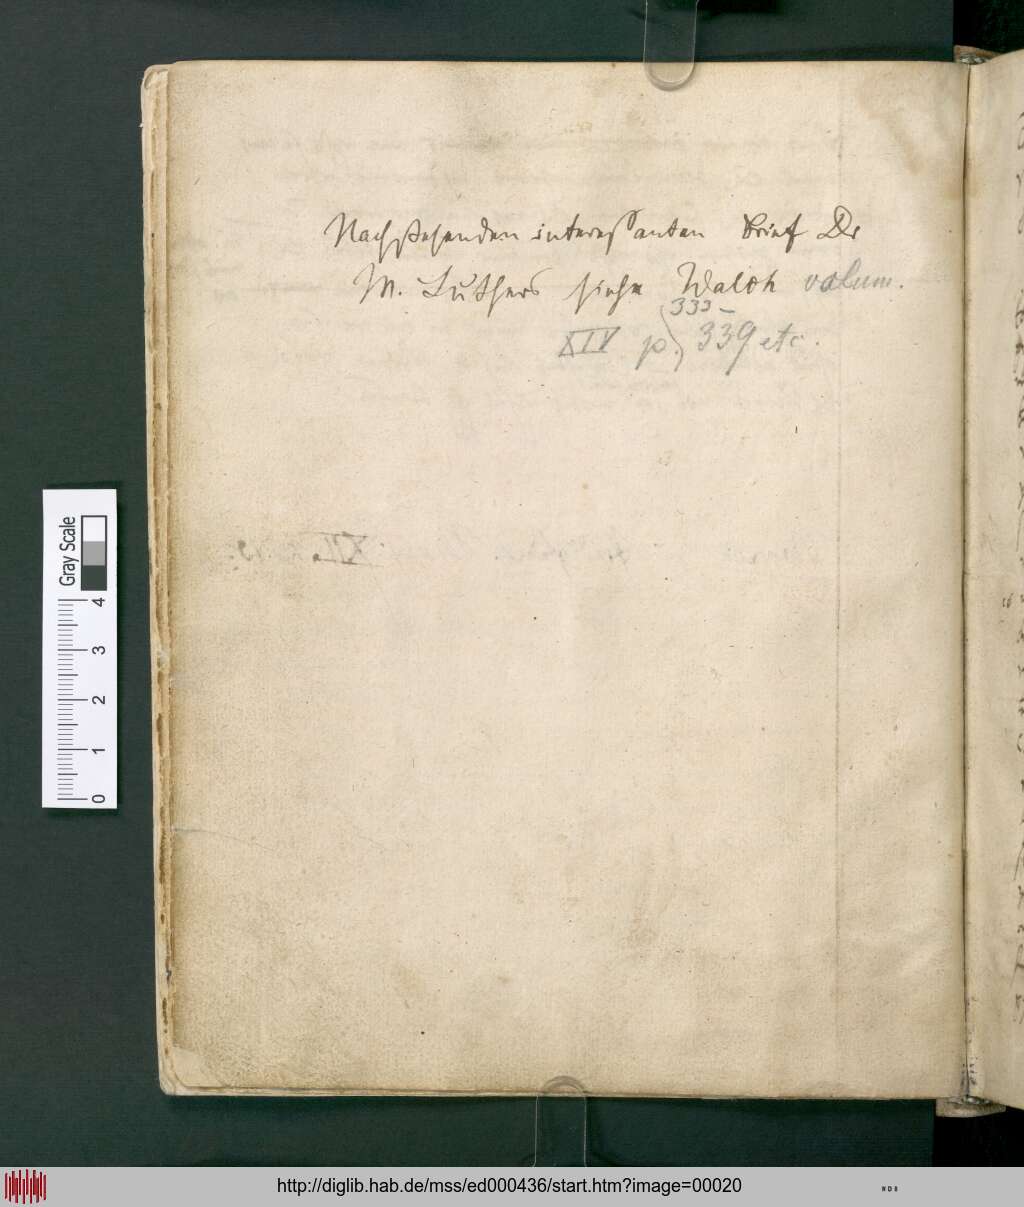 Nachstehenden interessanten Brief Dr
M. Luthers siehe Walch volum.
333 –
XIV p. 339 etc.
Gray Scale
4
3
2
1
0
http://diglib.hab.de/mss/ed000436/start.htm?image=00020